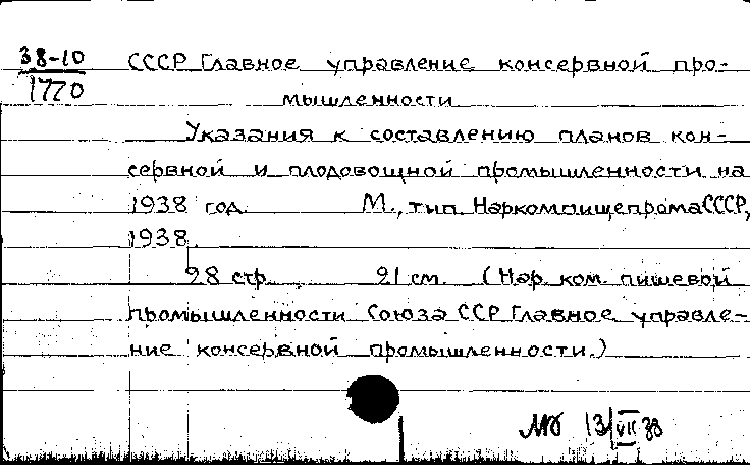 38-10
1770
СССР Главное управление консервной про-
мышленности
Указания к составлению планов кон-
сервной и плодовощной промышленности на
1938 год. М., тип. НаркомпищепромаСССР,
1938.
28 стр. 21 см. (Нар. ком. пищевой
промышленности Союза ССР Главное управле-
ние консервной промышленности.)
13/VII 38